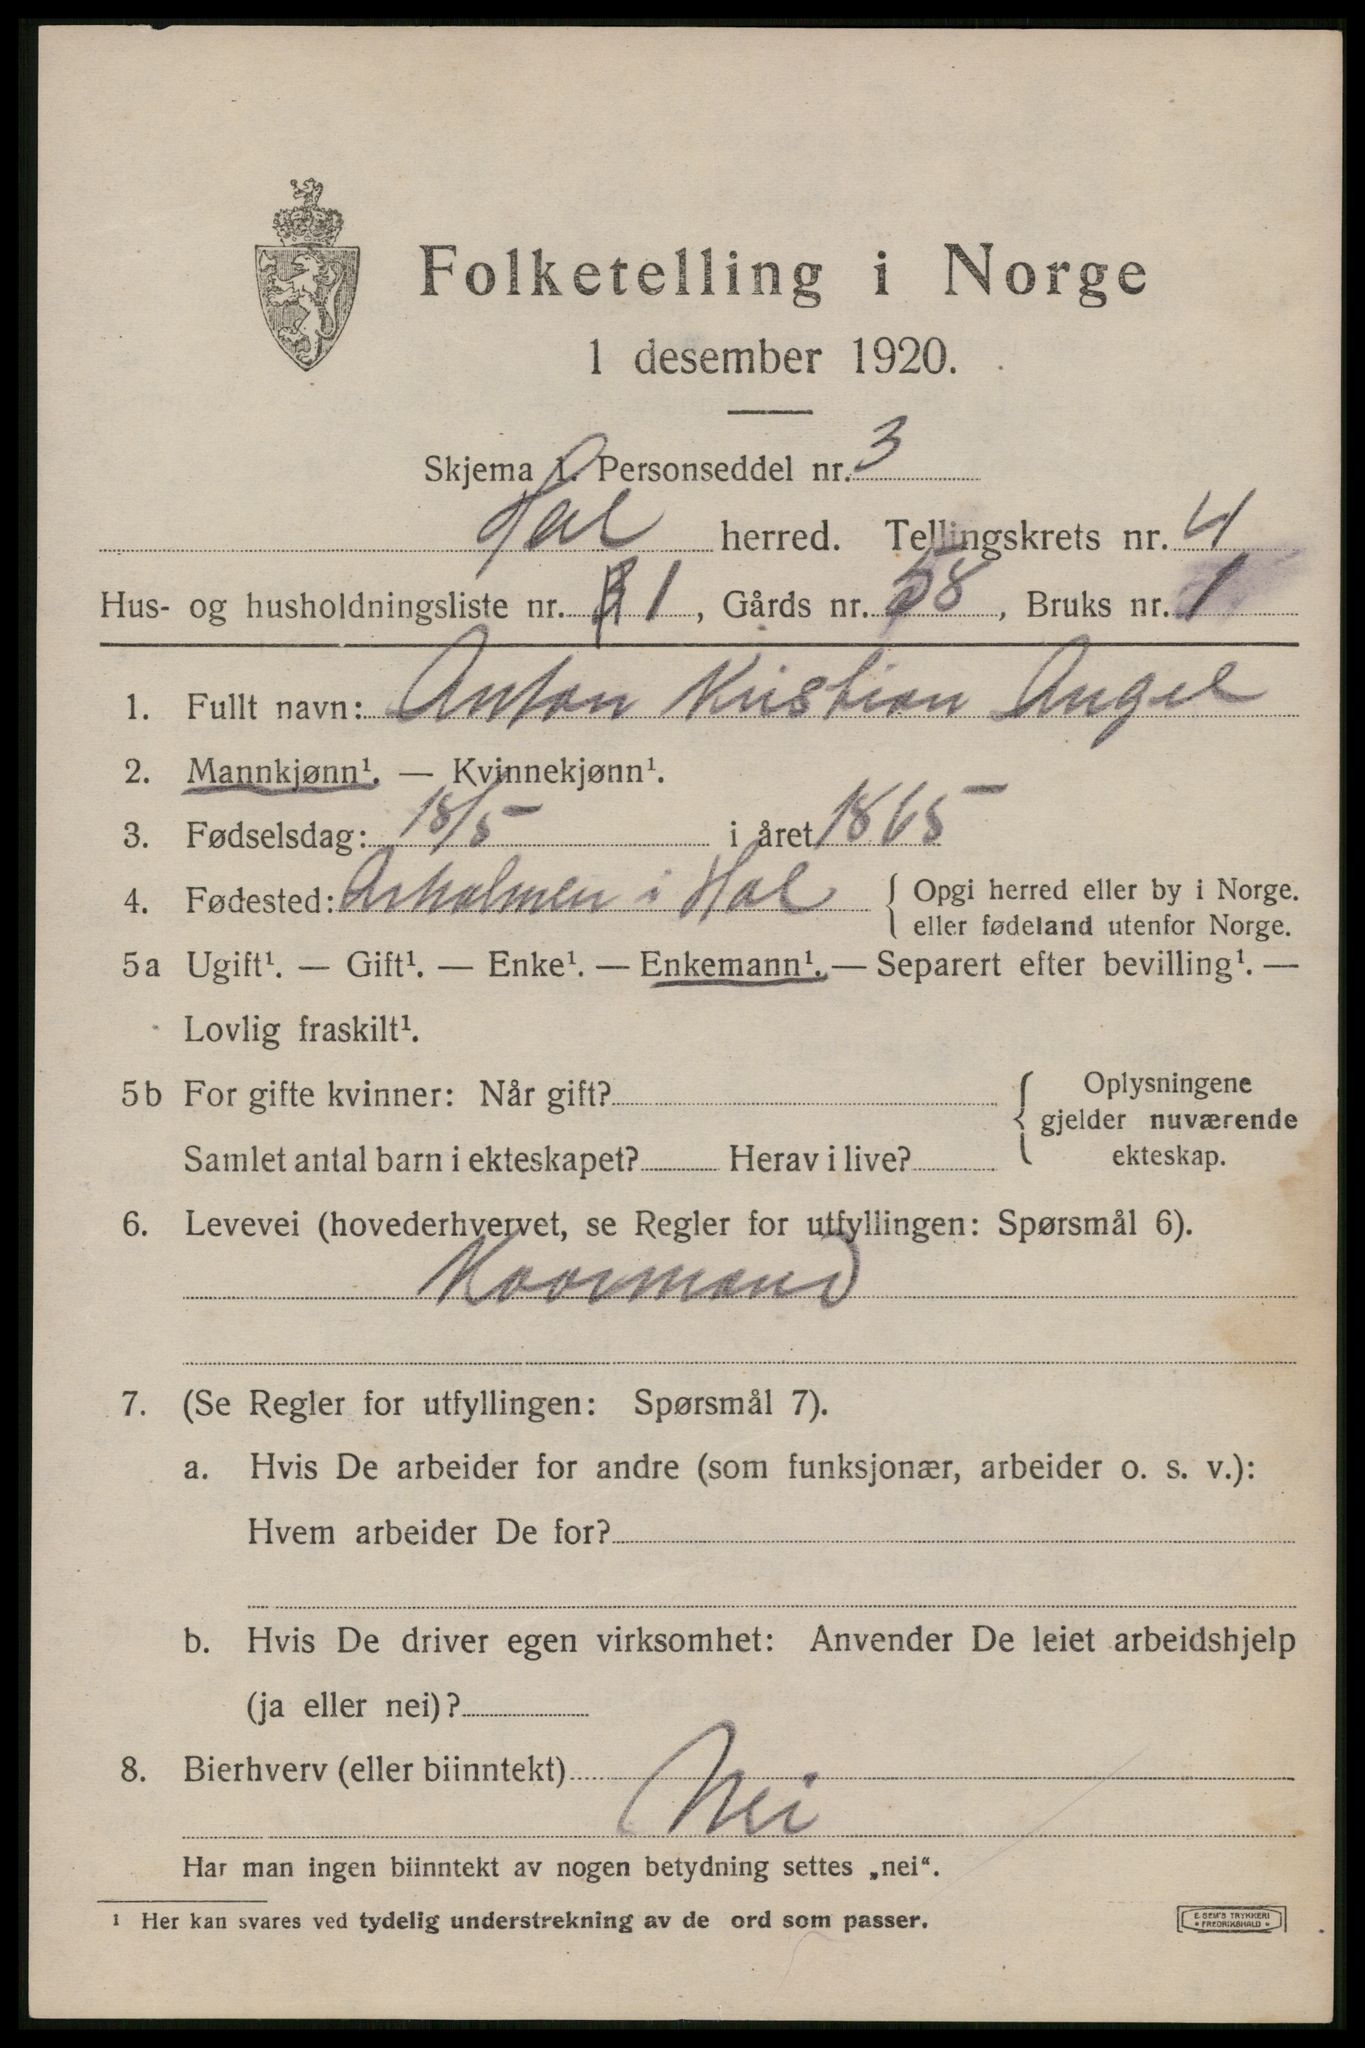 Folketelling i Norge
1 desember 1920.
Skjema 1. Personseddel nr. 3
Hol herred. Tellingskrets nr. 4
Hus- og husholdningsliste nr. 1, Gårds nr. 58, Bruks nr. 1
1. Fullt navn: Anton Kristian Angel
2. Mannkjønn¹. — Kvinnekjønn¹.
3. Fødselsdag: 18/5 i året 1865
4. Fødested: i Hol { Opgi herred eller by i Norge.
eller fødeland utenfor Norge.
5a Ugift¹. — Gift¹. — Enke¹. — Enkemann¹. — Separert efter bevilling¹. —
Lovlig fraskilt¹.
5b For gifte kvinner: Når gift? { Oplysningene
gjelder nuværende
Samlet antal barn i ekteskapet? Herav i live? ekteskap.
6. Levevei (hovederhvervet, se Regler for utfyllingen: Spørsmål 6).
Kaarmand
7. (Se Regler for utfyllingen: Spørsmål 7).
a. Hvis De arbeider for andre (som funksjonær, arbeider o. s. v.):
Hvem arbeider De for?
b. Hvis De driver egen virksomhet: Anvender De leiet arbeidshjelp
(ja eller nei)?
8. Bierhverv (eller biinntekt)
Nei
Har man ingen biinntekt av nogen betydning settes „nei“.
¹ Her kan svares ved tydelig understrekning av de ord som passer.
E. SEM'S TRYKKERI
* FREDRIKSHALD *